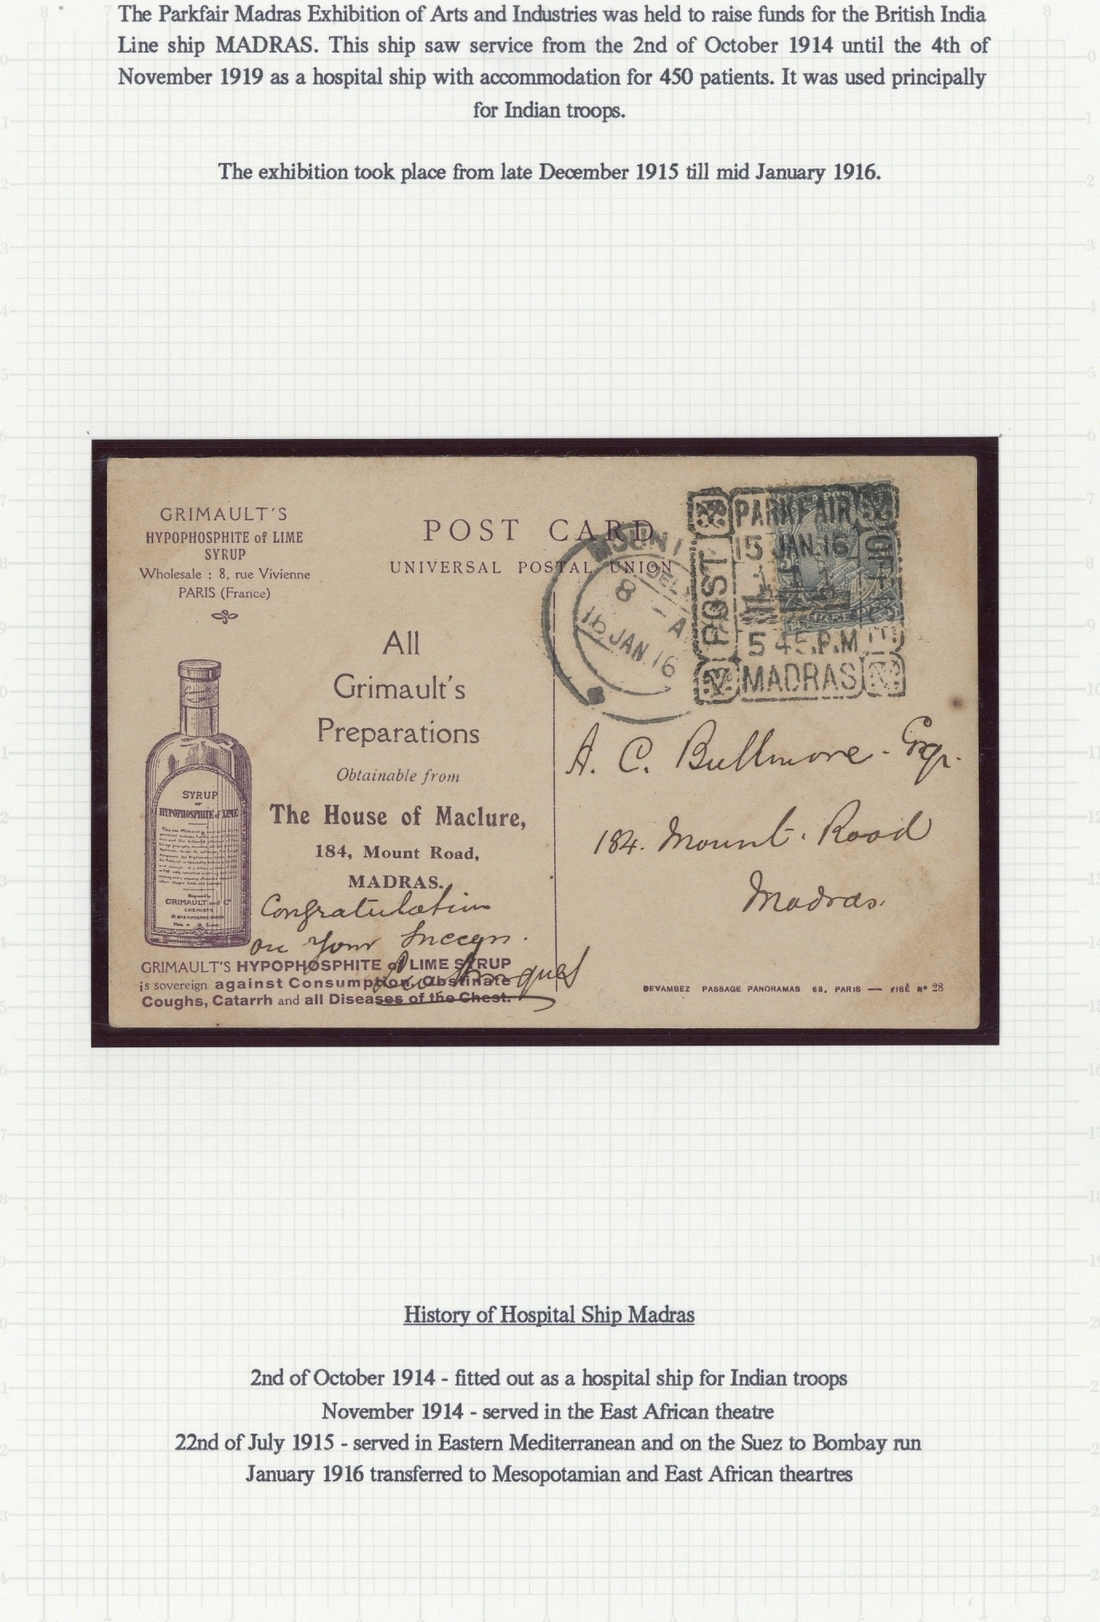 The Parkfair Madras Exhibition of Arts and Industries was held to raise funds for the British India
Line ship MADRAS. This ship saw service from the 2nd of October 1914 until the 4th of
November 1919 as a hospital ship with accommodation for 450 patients. It was used principally
for Indian troops.
The exhibition took place from late December 1915 till mid January 1916.
GRIMAULT'S
HYPOPHOSPHITE of LIME
SYRUP
Wholesale : 8, rue Vivienne
PARIS (France)
POST CARD
UNIVERSAL POSTAL UNION
MOUNT
DEL
8 - A
16 JAN 16
PARKFAIR
15 JAN. 16
POST
5 45. P.M
MADRAS
All
Grimault's
Preparations
Obtainable from
The House of Maclure,
184, Mount Road,
MADRAS.
SYRUP
OF
HYPOPHOSPHITE of LIME
GRIMAULT and Co
A. C. Bullmore. Esqr.
184. Mount. Road
Madras.
Congratulation
on your success.
GRIMAULT'S HYPOPHOSPHITE of LIME SYRUP
is sovereign against Consumption, Obstinate
Coughs, Catarrh and all Diseases of the Chest.
DEVAMBEZ PASSAGE PANORAMAS 63, PARIS — VISÉ Nº 28
History of Hospital Ship Madras
2nd of October 1914 - fitted out as a hospital ship for Indian troops
November 1914 - served in the East African theatre
22nd of July 1915 - served in Eastern Mediterranean and on the Suez to Bombay run
January 1916 transferred to Mesopotamian and East African theartres